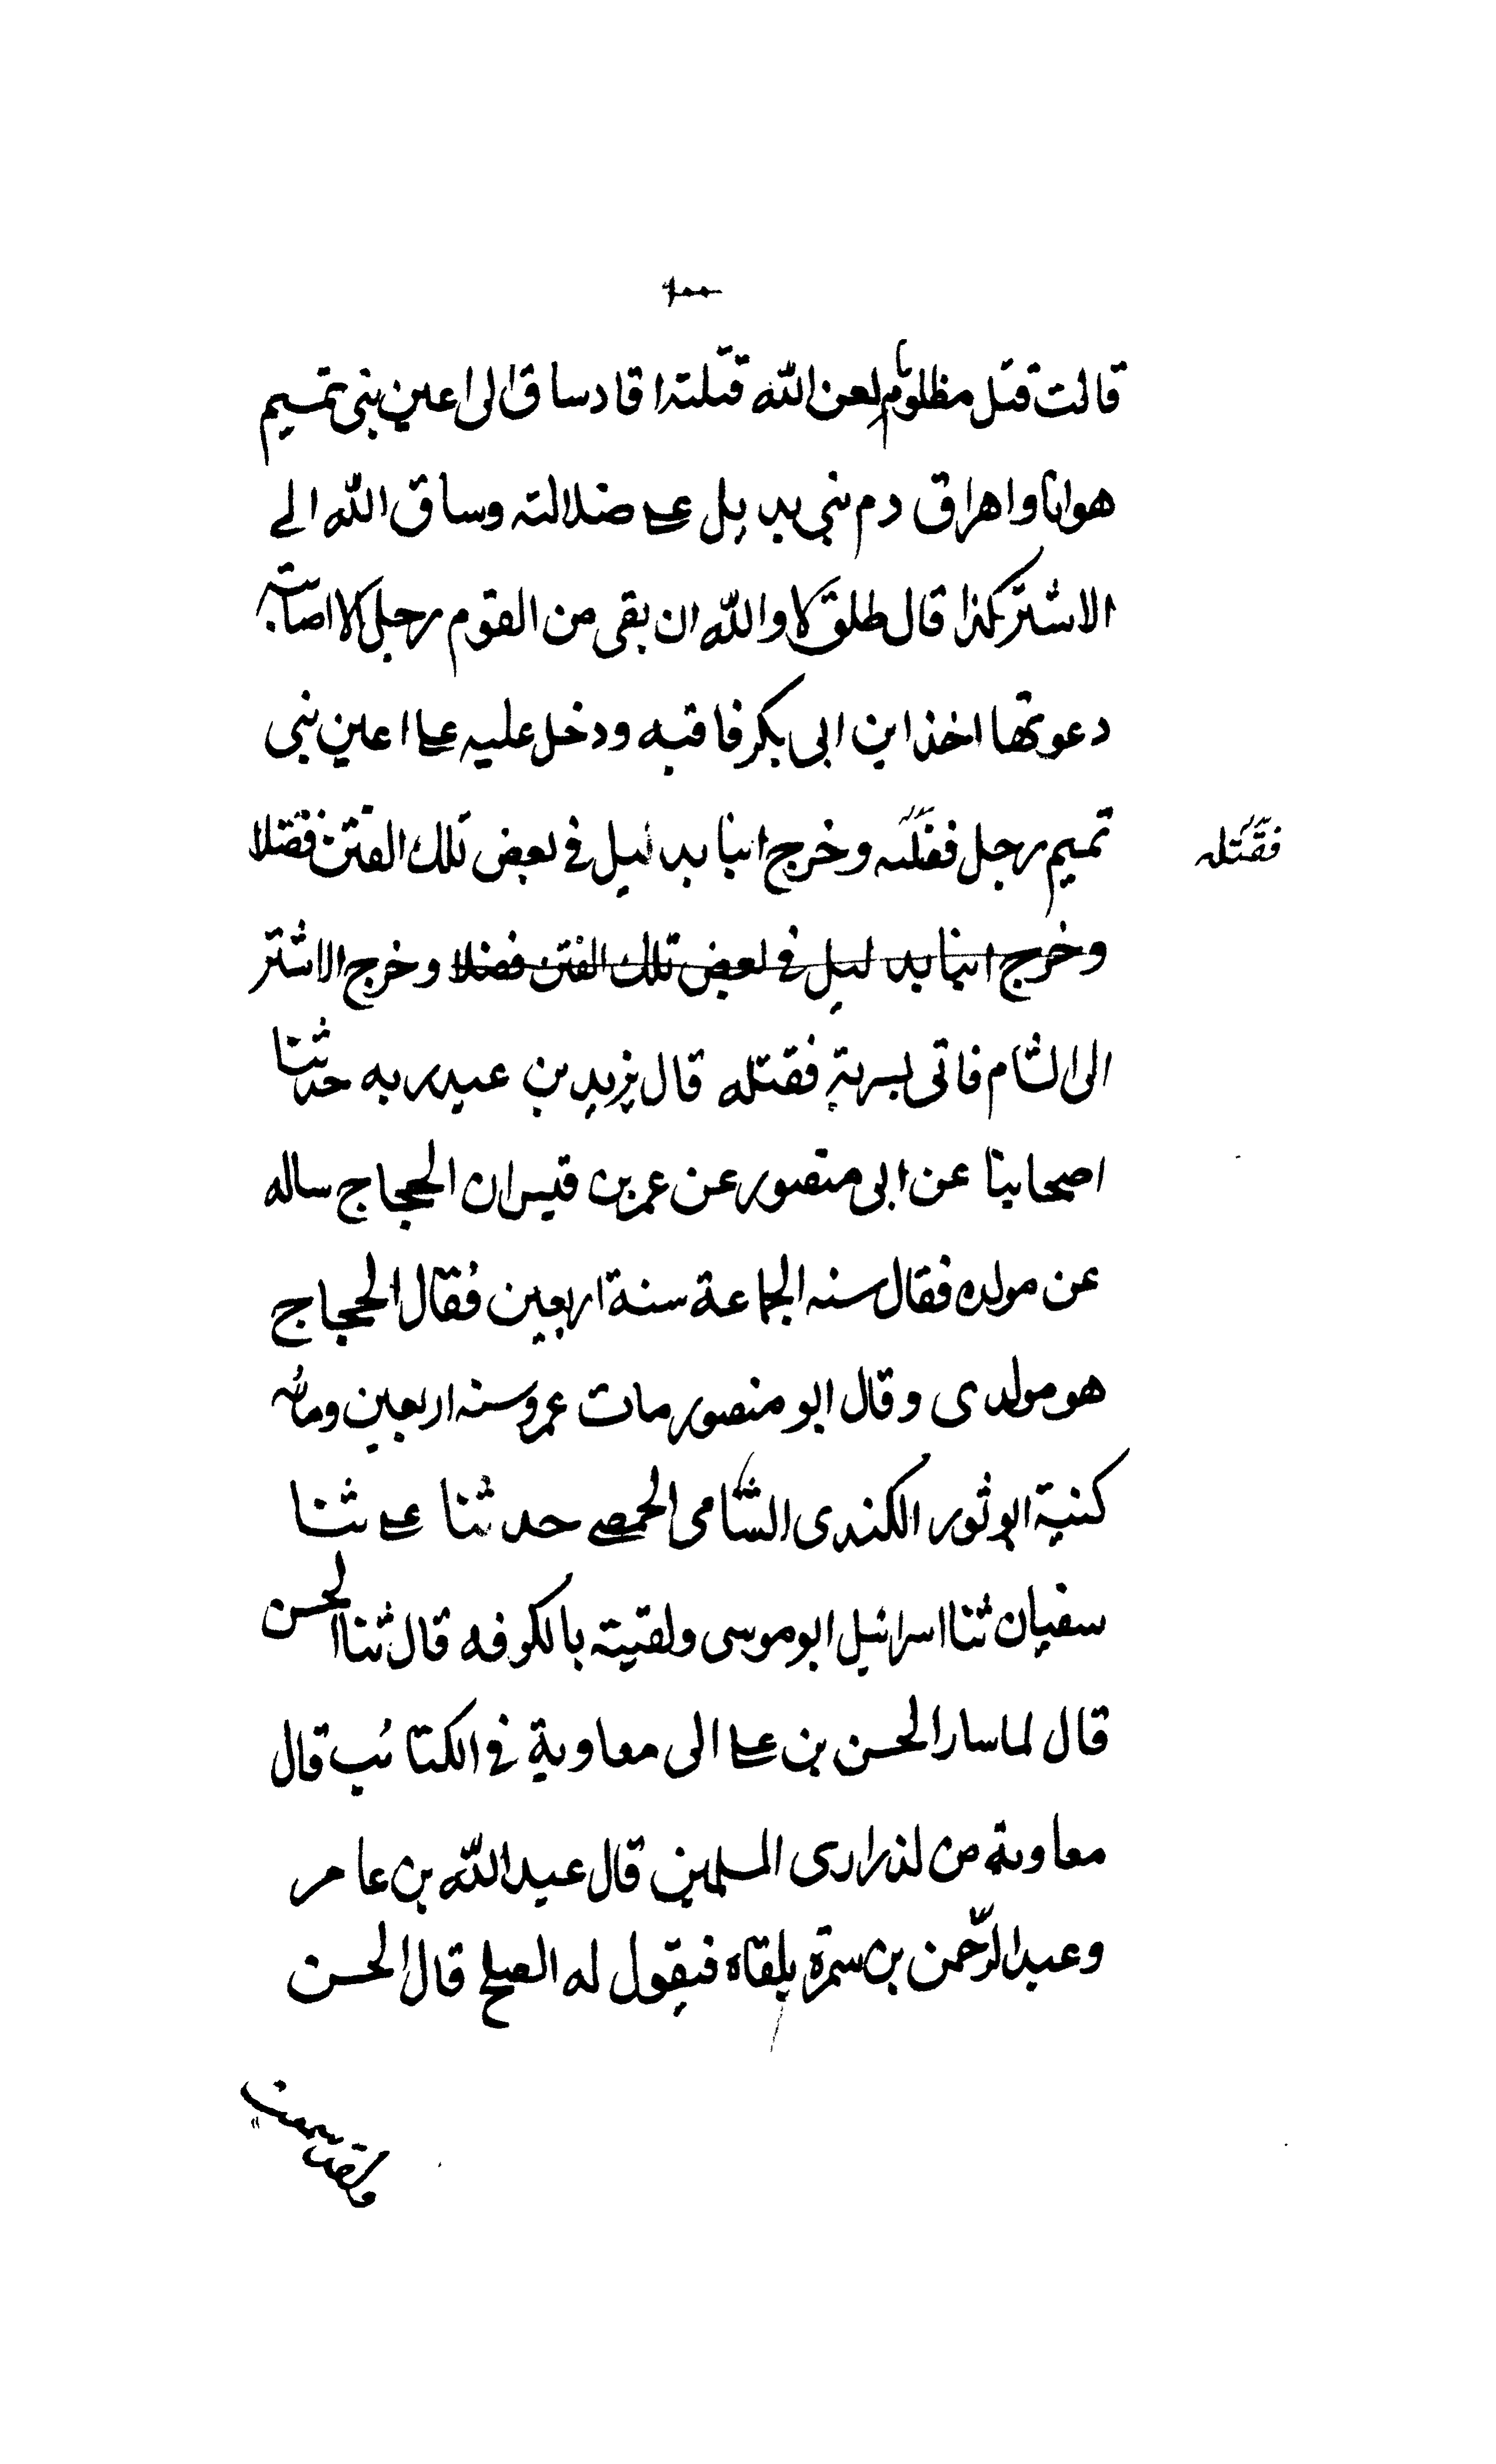 قالت قتل مظلوما لعن الله قتلته اقاد ساق الى اعين بنى تميم
هوانا واهراق دم بنى بديل على ضلالته وساق الله الى
الاشتر كذا قال طلق لا والله ان بقى من القوم رجل الا اصابته
دعوتها اخذ ابن ابى بكر فاقبه ودخل عليه على اعين بنى
تميم رجل فقتله وخرج ابنا بديل فى بعض تلك الفتن فقتلا
فقتله
وخرج ابنا بديل فى بعض تلك الفتن فقتلا وخرج الاشتر
الى الشام فاتى بسربة فقتله قال يزيد بن عبد ربه حدثنا
اصحابنا عن ابى منصور عن عمر بن قيس ان الحجاج ساله
عن مولده فقال سنه الجماعة سنة اربعين فقال الحجاج
هو مولدى وقال ابو منصور مات عمرو سنه اربعين ومائه
كنية ابو ثور الكندى الشامى الحمصى حدثنا على ثنا
سفيان ثنا اسرائيل ابو موسى ولقيته بالكوفه قال ثنا الحسن
قال لما سار الحسن بن على الى معاوية فى الكتائب قال
معاوية من لذرارى المسلمين قال عبد الله بن عامر
وعبد الرّحمن بن سمرة يلقاه فيقول له الصلح قال الحسن
ولقد سمعت